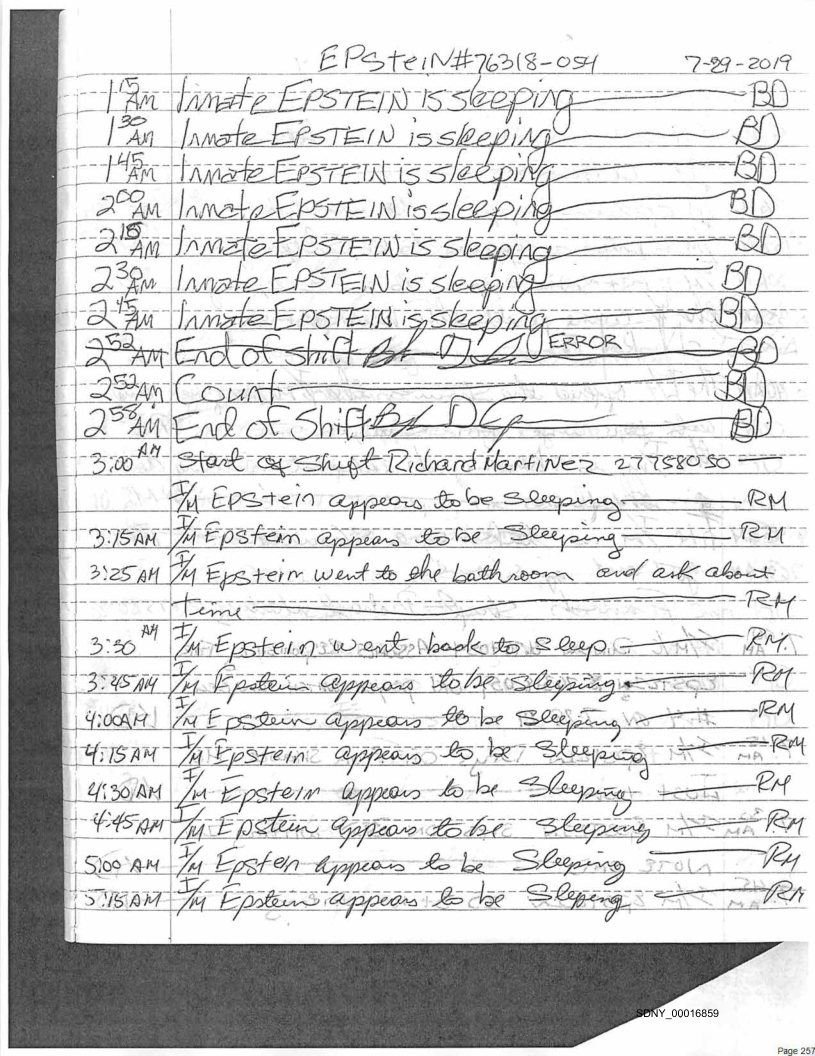 EPSteiN#76318-054 7-29-2019
1:15 AM Inmate EPSTEIN is sleeping BD
1:30 AM Inmate EPSTEIN is sleeping BD
1:45 AM Inmate EPSTEIN is sleeping BD
2:00 AM Inmate EPSTEIN is sleeping BD
2:15 AM Inmate EPSTEIN is sleeping BD
2:30 AM Inmate EPSTEIN is sleeping BD
2:45 AM Inmate EPSTEIN is sleeping BD
2:52 AM End of shift ERROR BD
2:52 AM Count BD
2:58 AM End of Shift BD
3:00 AM Start of Shift Richard Martinez 27758050
I/M EPStein appears to be Sleeping RM
3:15 AM I/M Epstein appears to be Sleeping RM
3:25 AM I/M Epstein went to the bathroom and ask about
time RM
3:30 AM I/M Epstein went back to sleep. RM.
3:45 AM I/M Epstein appears to be sleeping RM
4:00AM I/M Epstein appears to be Sleeping RM
4:15 AM I/M Epstein appears to be Sleeping RM
4:30 AM I/M Epstein appears to be Sleeping RM
4:45 AM I/M Epstein appears to be sleeping RM
5:00 AM I/M Epsten appears to be Sleeping RM
5:15 AM I/M Epstein appears to be Sleping RM
SDNY_00016859
Page 257